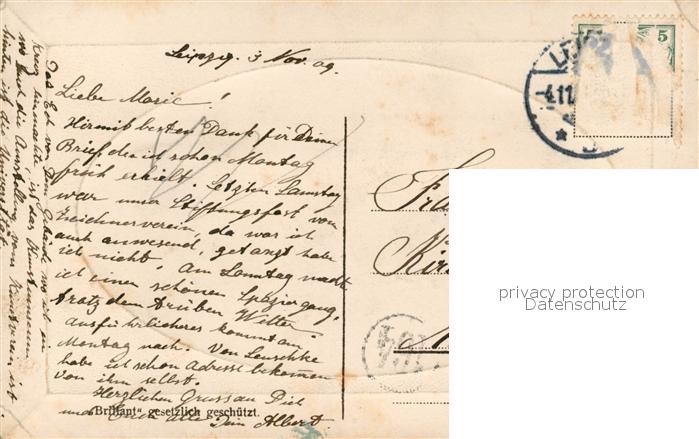 Leipzig. 3 Nov. 09.
Liebe Marie!
Hiermit besten Dank für Deinen
Brief, den ich schon Montag
früh erhielt. Letzten Samstag
war unser Stiftungsfest vom
Zeichnerverein, da war ich
auch anwesend, getanzt habe
ich nicht! Am Sonntag machte
ich einen schönen Spaziergang,
trotz dem trüben Wetter.
ausführlicheres kommt am
Montag nach. Von Leuschke
habe ich schon Adresse bekommen
von ihm selbst.
Herzlichen Gruss an Dich
und Euch alle Dein Albert.
Das Eck vom Gebäude wo ich ein
Kreuz hinmachte, ist das Kunstmuseum
wo auch die Ausstellung vom Kunstverein ist
hinten ist die Universität.
"Brillant" gesetzlich geschützt.
5
-4.11.
privacy protection
Datenschutz